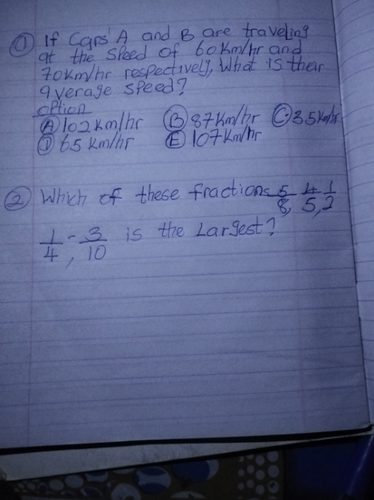 ① If Cars A and B are traveling
at the speed of 60km/hr and
70km/hr respectively, what is their
average speed?
option
Ⓐ 102km/hr Ⓑ 87km/hr Ⓒ 35km/hr
Ⓓ 65 km/hr Ⓔ 107km/hr
② Which of these fractions 5/8, 4/5, 1/2
1/4, 3/10 is the Largest?